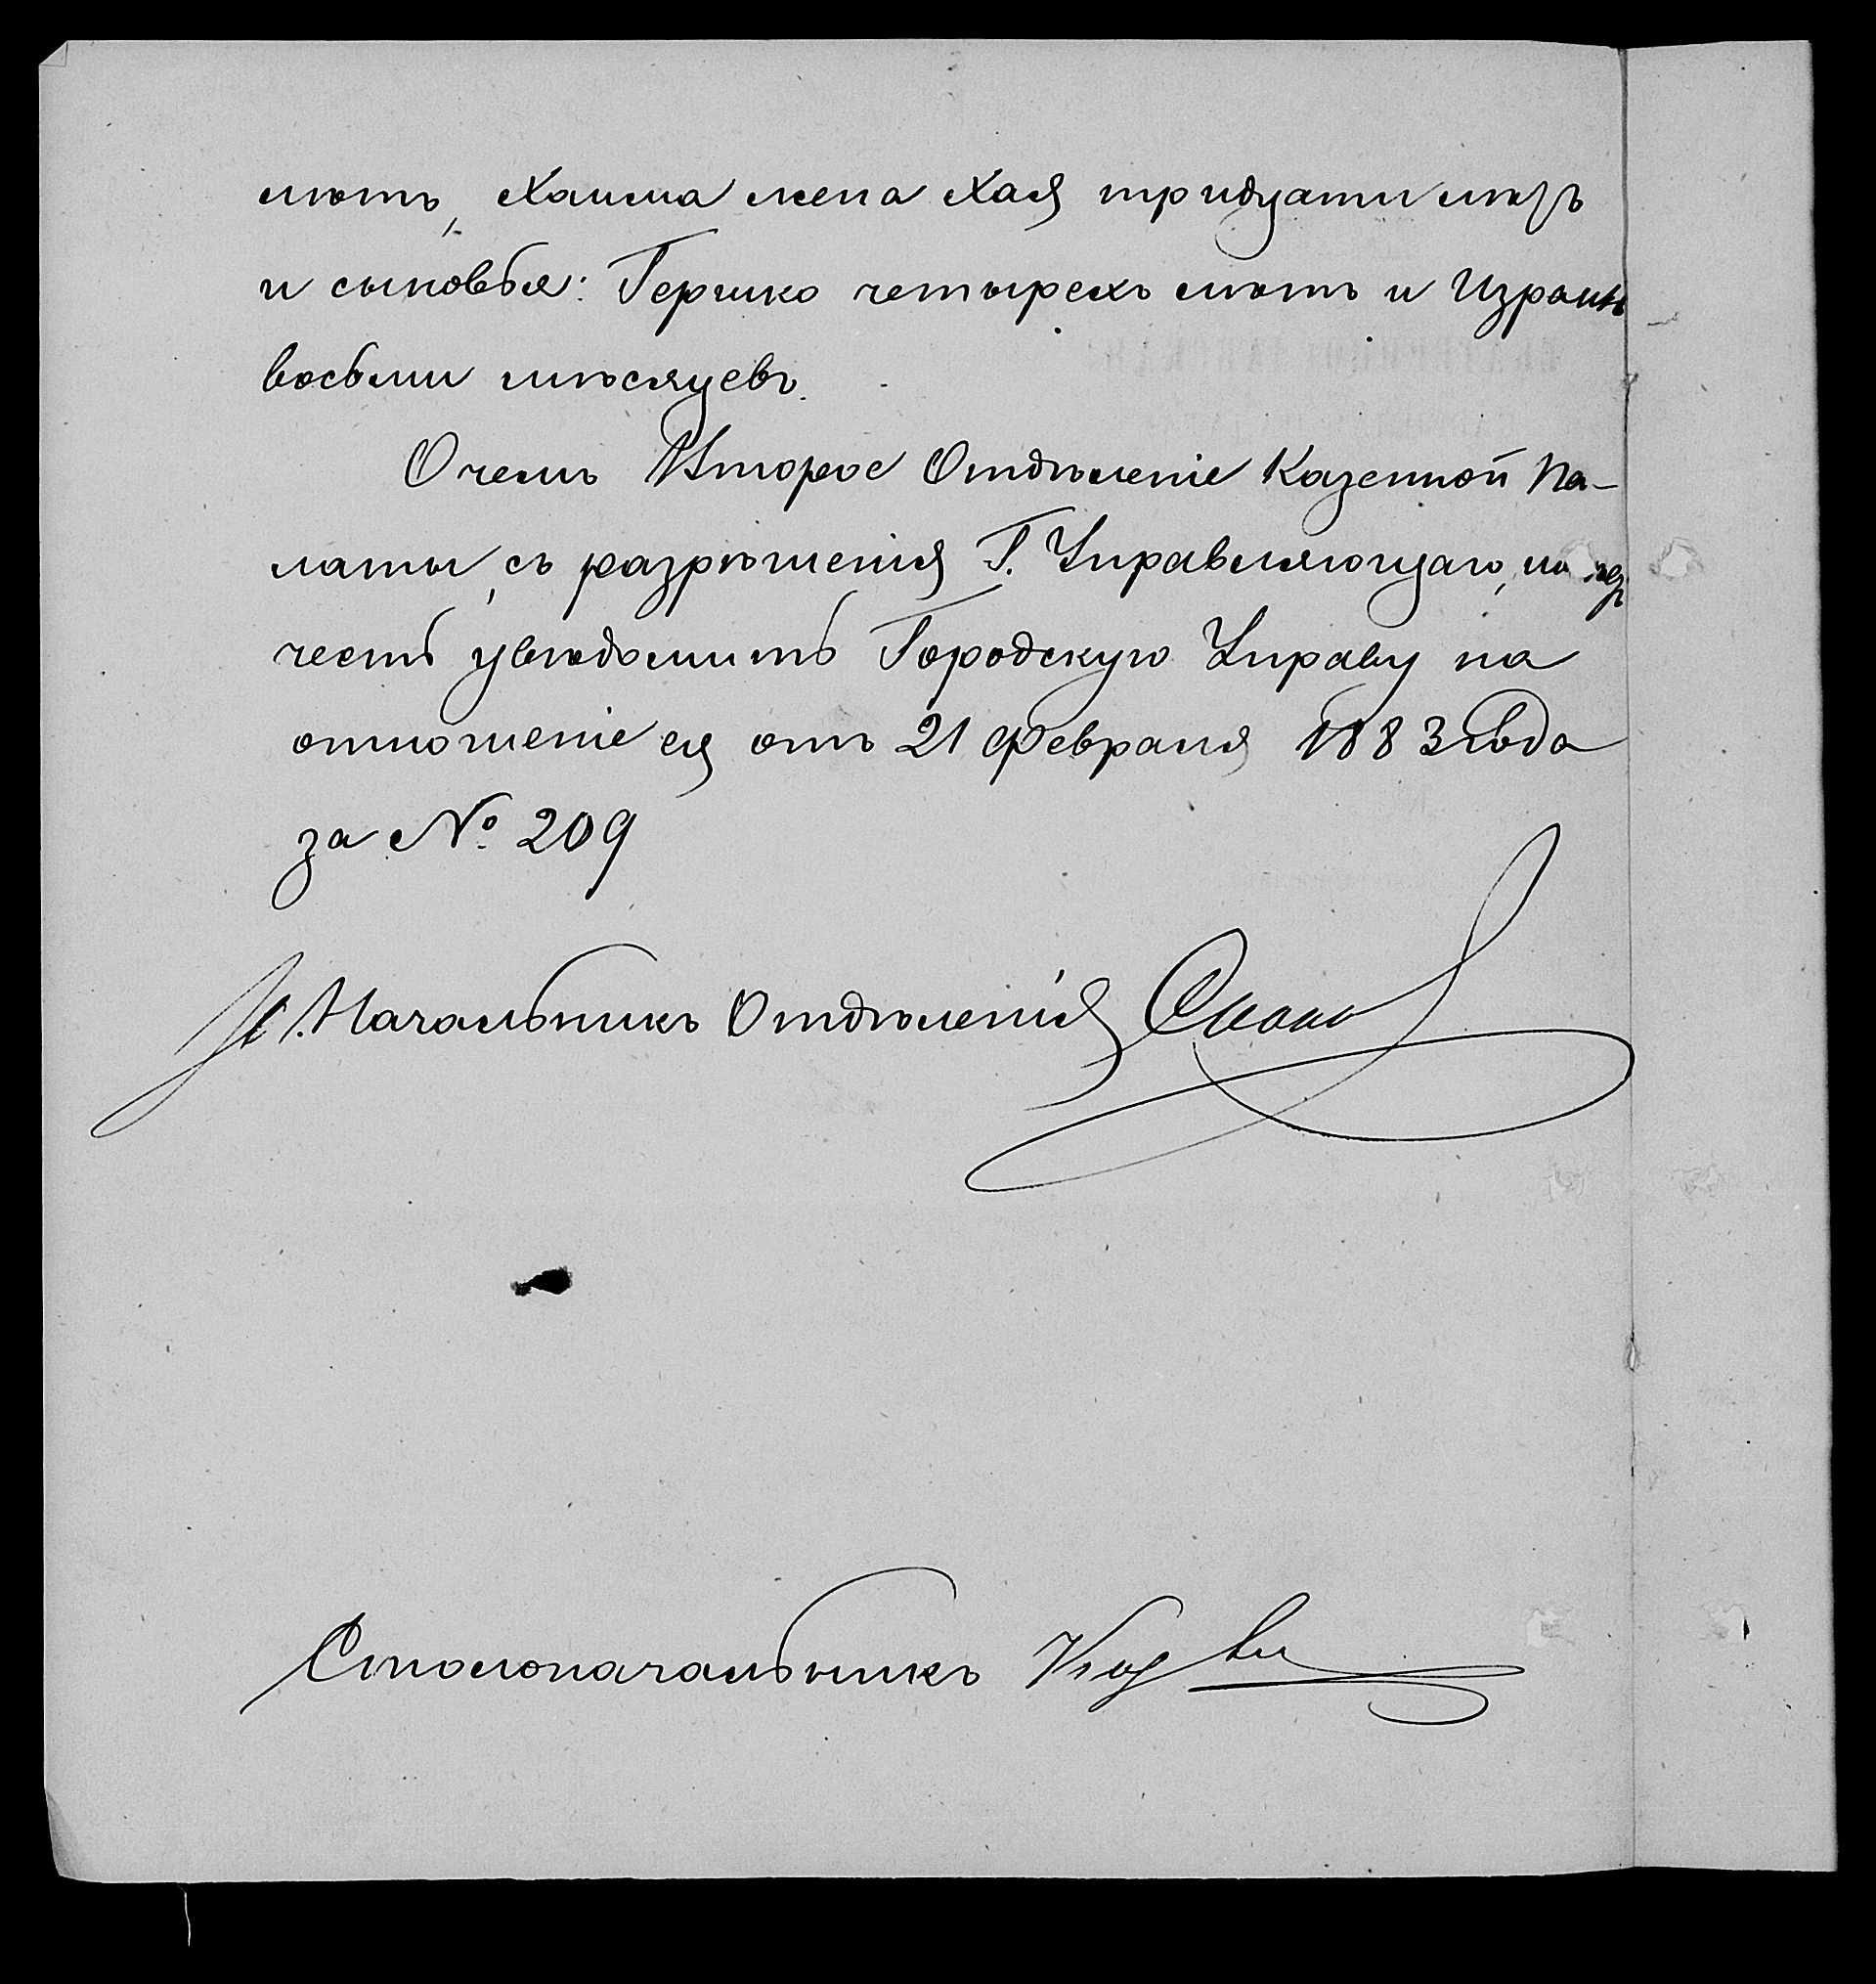 лѣтъ, Хаима жена Хая тридцати лѣтъ
и сыновья: Гершко четырехъ лѣтъ и Израиль
восьми мѣсяцевъ.
О чемъ Второе Отдѣленіе Казенной Па-
латы, съ разрѣшенія Г. Управляющаго,
честь увѣдомить Городскую Управу на
отношеніе ея отъ 21 Февраля 1883 года
за № 209
И. Начальникъ Отдѣленія
Столоначальникъ